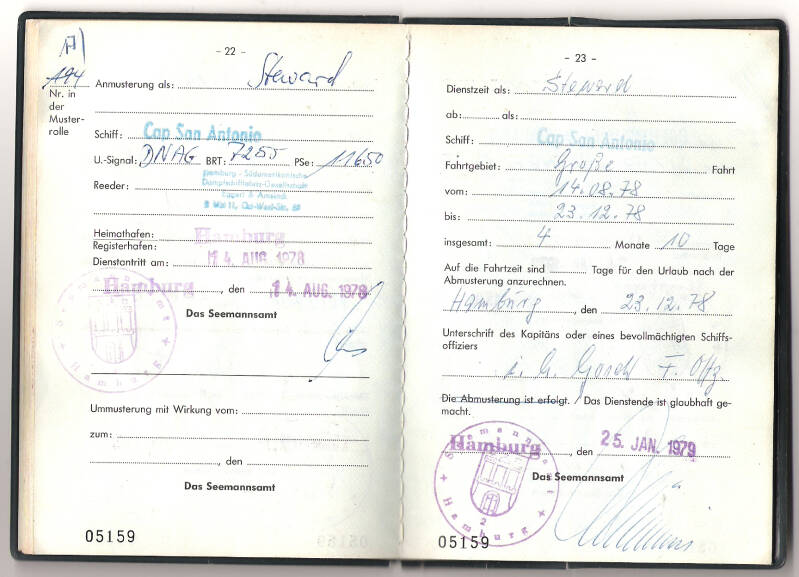 - 22 -
194
Nr. in
der
Muster-
rolle
Anmusterung als: Steward
Schiff: Cap San Antonio
U.-Signal: DNAG BRT: 7255 PSe: 11650
Hamburg - Südamerikanische
Dampfschifffahrts-Gesellschaft
Eggert & Amsinck
Reeder:
2 Hbg 11, Ost-West-Str. 59
Heimathafen: Hamburg
Registerhafen:
Dienstantritt am: 14. AUG. 1978
Hamburg, den 14. AUG. 1978
Das Seemannsamt
Seemannsamt
Hamburg
Ummusterung mit Wirkung vom:
zum:
, den
Das Seemannsamt
05159
- 23 -
Dienstzeit als: Steward
ab: als:
Schiff: Cap San Antonio
Fahrtgebiet: Große Fahrt
vom: 14.08.78
bis: 23.12.78
insgesamt: 4 Monate 10 Tage
Auf die Fahrtzeit sind Tage für den Urlaub nach der
Abmusterung anzurechnen.
Hamburg, den 23.12.78
Unterschrift des Kapitäns oder eines bevollmächtigten Schiffs-
offiziers
Die Abmusterung ist erfolgt. / Das Dienstende ist glaubhaft ge-
macht.
Hamburg, den 25. JAN. 1979
Das Seemannsamt
Seemannsamt
2
Hamburg
05159